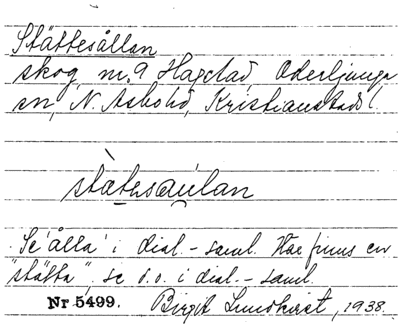 Stättesållan
skog, nr 9 Hagstad Oderljunga
sn, N. Åsbohd, Kristianstads l.
stàtesaulan
Se 'ålla' i dial.-saml. Här finns en
"stätta", se d.o. i dial.-saml.
Nr 5499. Birgit Lundkvist, 1938.